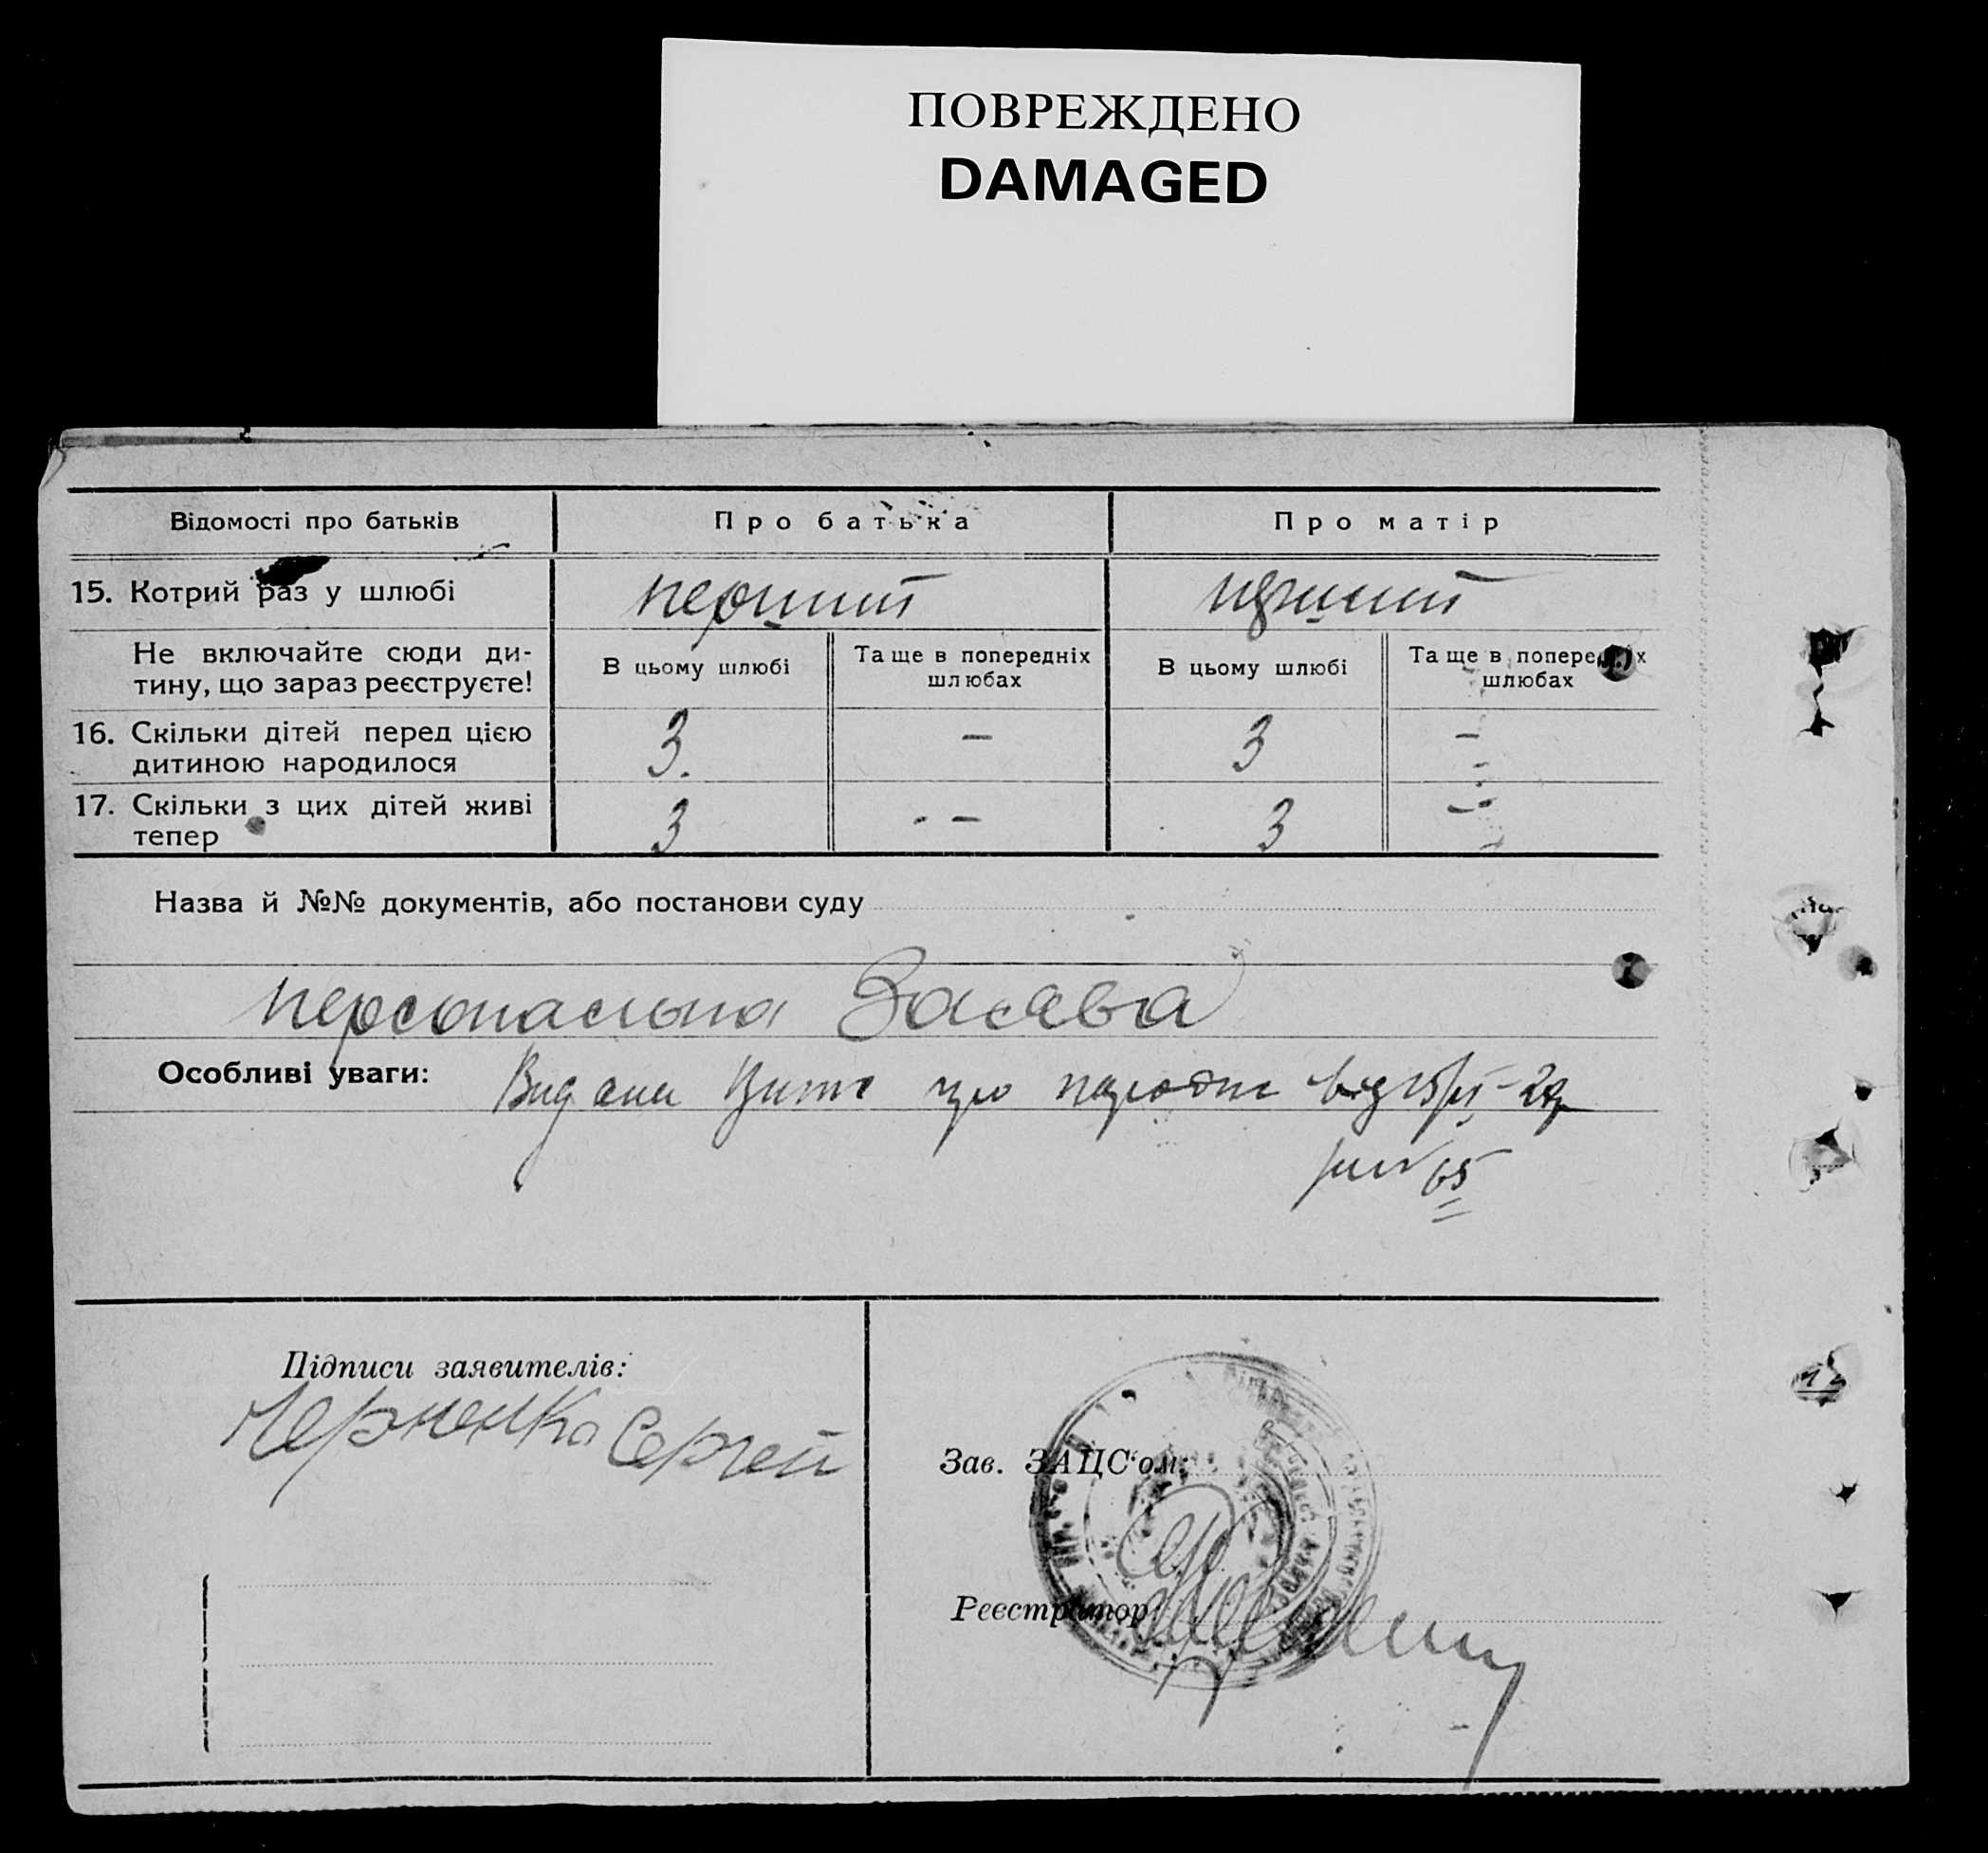 ПОВРЕЖДЕНО
DAMAGED
Відомості про батьків
Про батька
Про матір
15. Котрий раз у шлюбі
перший
перший
Не включайте сюди ди-
тину, що зараз реєструєте!
В цьому шлюбі
Та ще в попередніх
шлюбах
В цьому шлюбі
Та ще в попередніх
шлюбах
16. Скільки дітей перед цією
дитиною народилося
3.
—
3
—
17. Скільки з цих дітей живі
тепер
3
—
3
—
Назва й №№ документів, або постанови суду
персональна Заява
Особливі уваги:
Видани про від
65
Підписи заявителів:
Черненко Сергей
Зав. ЗАЦС'ом:
Реєстратор: